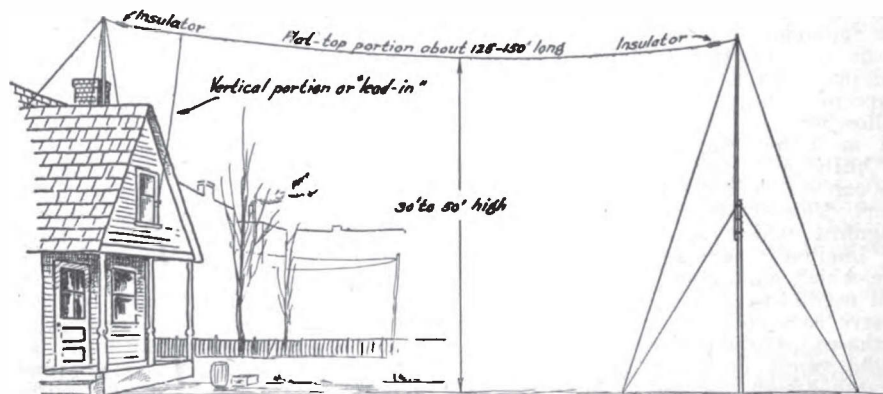 Insulator
Flat-top portion about 125-150' long
Insulator
Vertical portion or "lead-in"
30' to 50' high